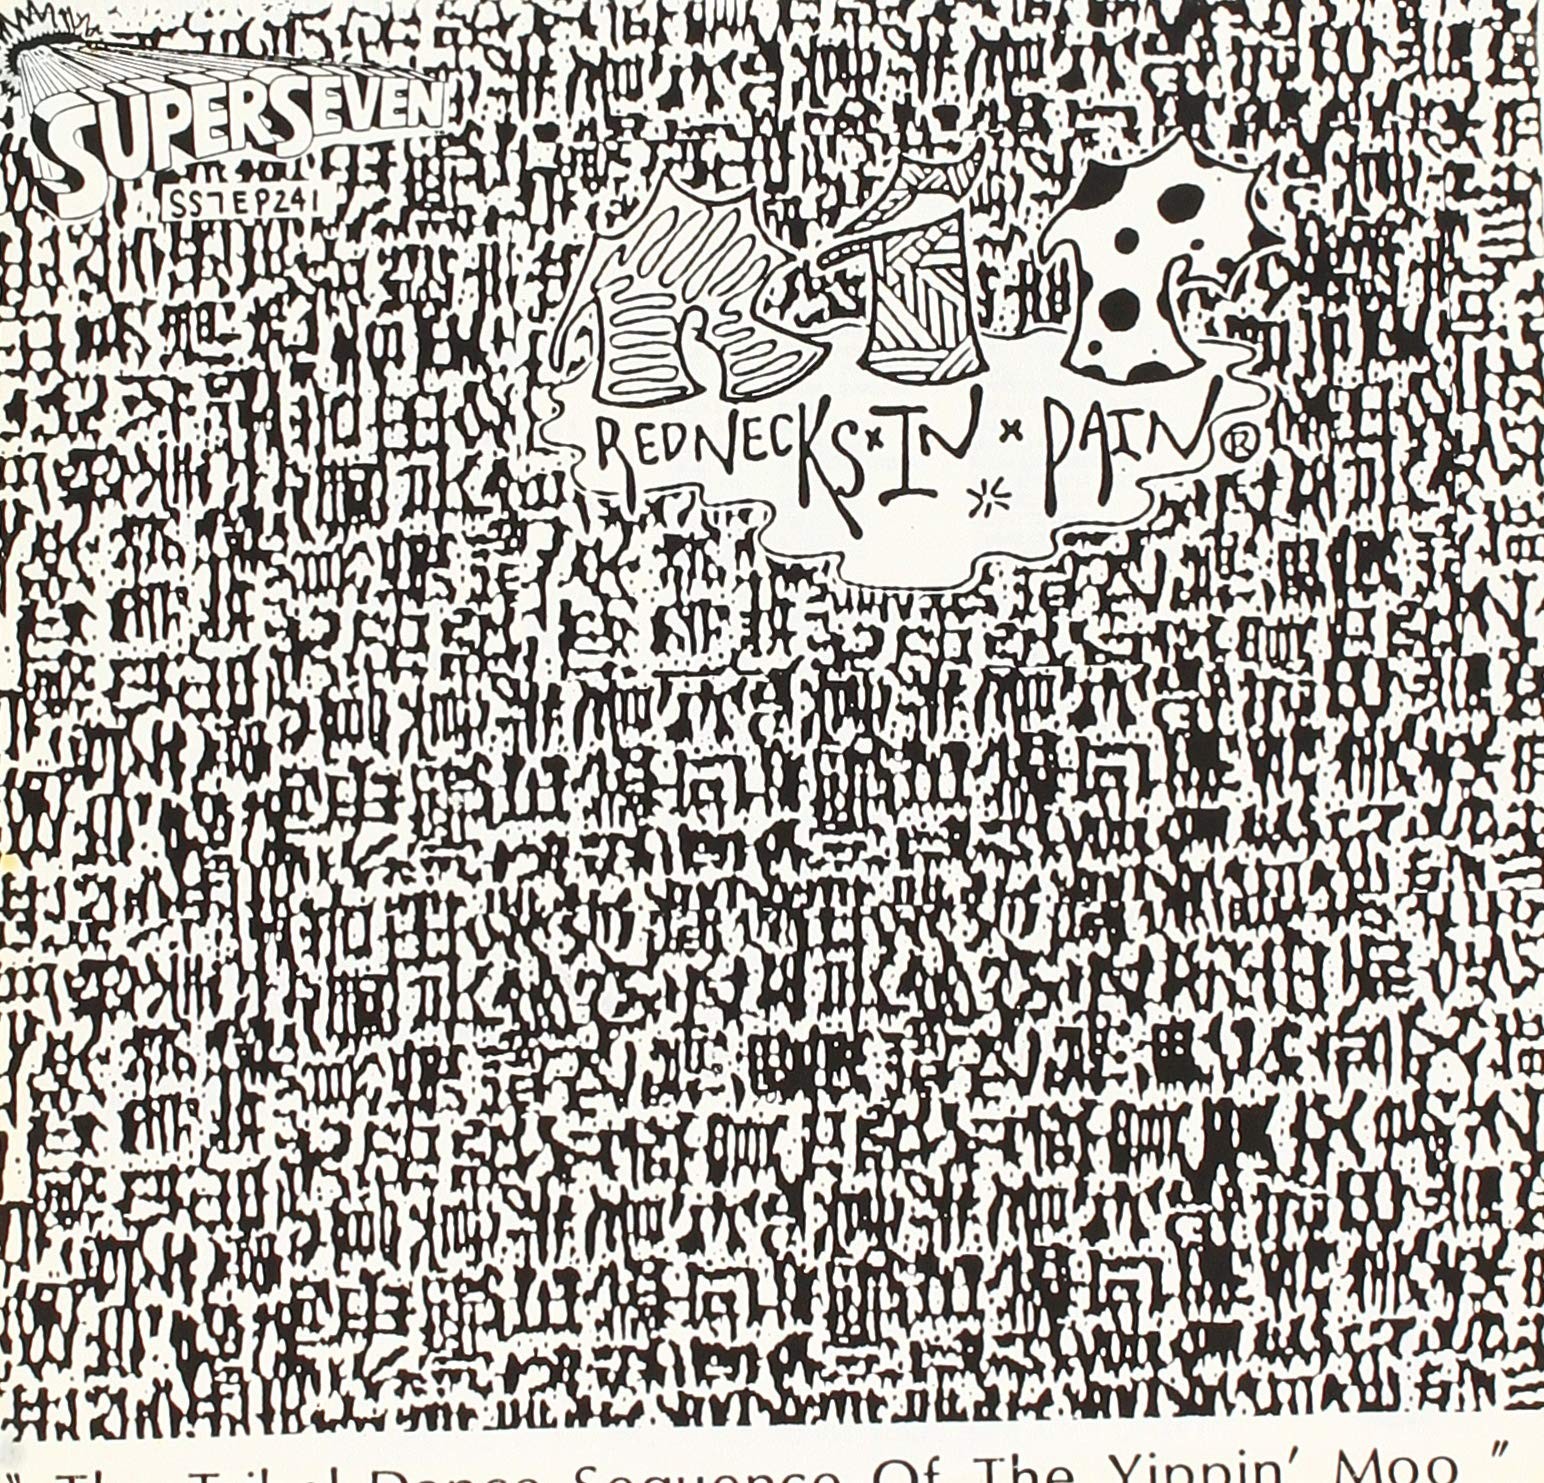 SUPERSEVEN
SS7EP241
RIP
REDNECKS × IN × PAIN ®
" The Tribal Dance Sequence Of The Yippin' Moo "